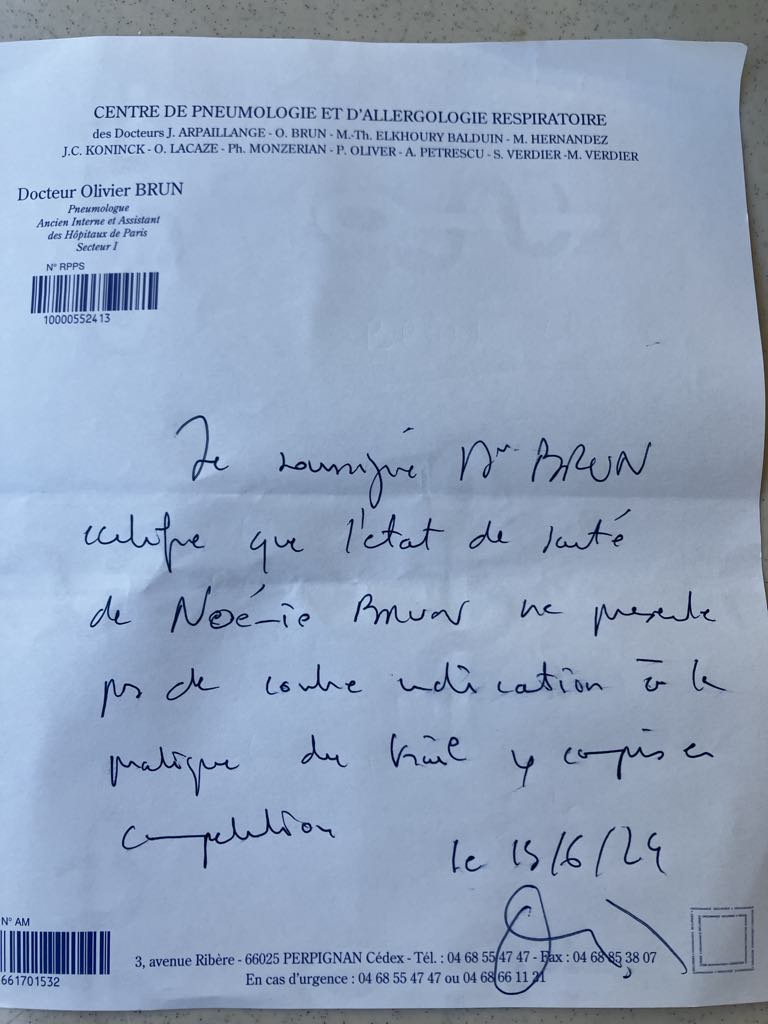 CENTRE DE PNEUMOLOGIE ET D'ALLERGOLOGIE RESPIRATOIRE
des Docteurs J. ARPAILLANGE - O. BRUN - M.-Th. ELKHOURY BALDUIN - M. HERNANDEZ
J.C. KONINCK - O. LACAZE - Ph. MONZERIAN - P. OLIVER - A. PETRESCU - S. VERDIER -M. VERDIER
Docteur Olivier BRUN
Pneumologue
Ancien Interne et Assistant
des Hôpitaux de Paris
Secteur I
N° RPPS
10000552413
Je soussigné Dr BRUN
certifie que l'état de santé
de Noémie BRUN ne présente
pas de contre indication à la
pratique du trail y compris en
compétition
le 15/6/24
N° AM
661701532
3, avenue Ribère - 66025 PERPIGNAN Cédex - Tél. : 04 68 55 47 47 - Fax : 04 68 85 38 07
En cas d'urgence : 04 68 55 47 47 ou 04 68 66 11 21